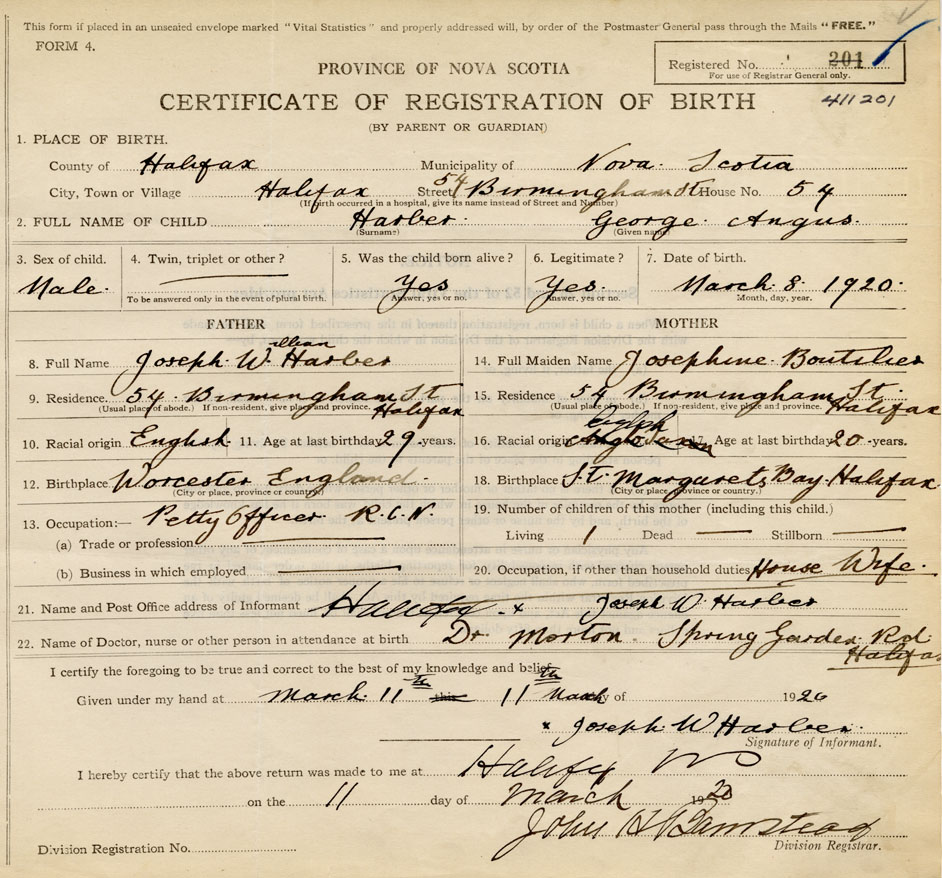 This form if placed in an unsealed envelope marked "Vital Statistics" and properly addressed will, by order of the Postmaster General pass through the Mails "FREE."
FORM 4.
Registered No. 201
For use of Registrar General only.
PROVINCE OF NOVA SCOTIA
CERTIFICATE OF REGISTRATION OF BIRTH
411201
(BY PARENT OR GUARDIAN)
1. PLACE OF BIRTH.
County of Halifax Municipality of Nova Scotia
City, Town or Village Halifax Street 54 Birmingham St House No. 54
(If birth occurred in a hospital, give its name instead of Street and Number)
2. FULL NAME OF CHILD Harber George Angus.
(Surname) (Given name)
3. Sex of child. 4. Twin, triplet or other? 5. Was the child born alive? 6. Legitimate? 7. Date of birth.
Male. Yes Yes. March 8. 1920.
To be answered only in the event of plural birth. Answer, yes or no. Answer, yes or no. Month, day, year.
FATHER MOTHER
8. Full Name Joseph W illian Harber 14. Full Maiden Name Josephine Boutilier
9. Residence. 54 Birmingham St Halifax 15. Residence 54 Birmingham St. Halifax
(Usual place of abode.) If non-resident, give place and province. (Usual place of abode.) If non-resident, give place and province.
10. Racial origin English 11. Age at last birthday 29 years. 16. Racial origin 17. Age at last birthday 20 years.
12. Birthplace Worcester England. 18. Birthplace St. Margarets Bay Halifax
(City or place, province or country) (City or place, province or country.)
13. Occupation:— Petty Officer R.C.N. 19. Number of children of this mother (including this child.)
(a) Trade or profession Living 1 Dead — Stillborn —
(b) Business in which employed 20. Occupation, if other than household duties House Wife.
21. Name and Post Office address of Informant Halifax x Joseph W. Harber
22. Name of Doctor, nurse or other person in attendance at birth Dr. Morton. Spring Garden Rd Halifax
I certify the foregoing to be true and correct to the best of my knowledge and belief.
Given under my hand at March 11th this 11th March day of 1920
x Joseph W Harber
Signature of Informant.
I hereby certify that the above return was made to me at
on the 11 day of March 1920
Division Registration No. Division Registrar.